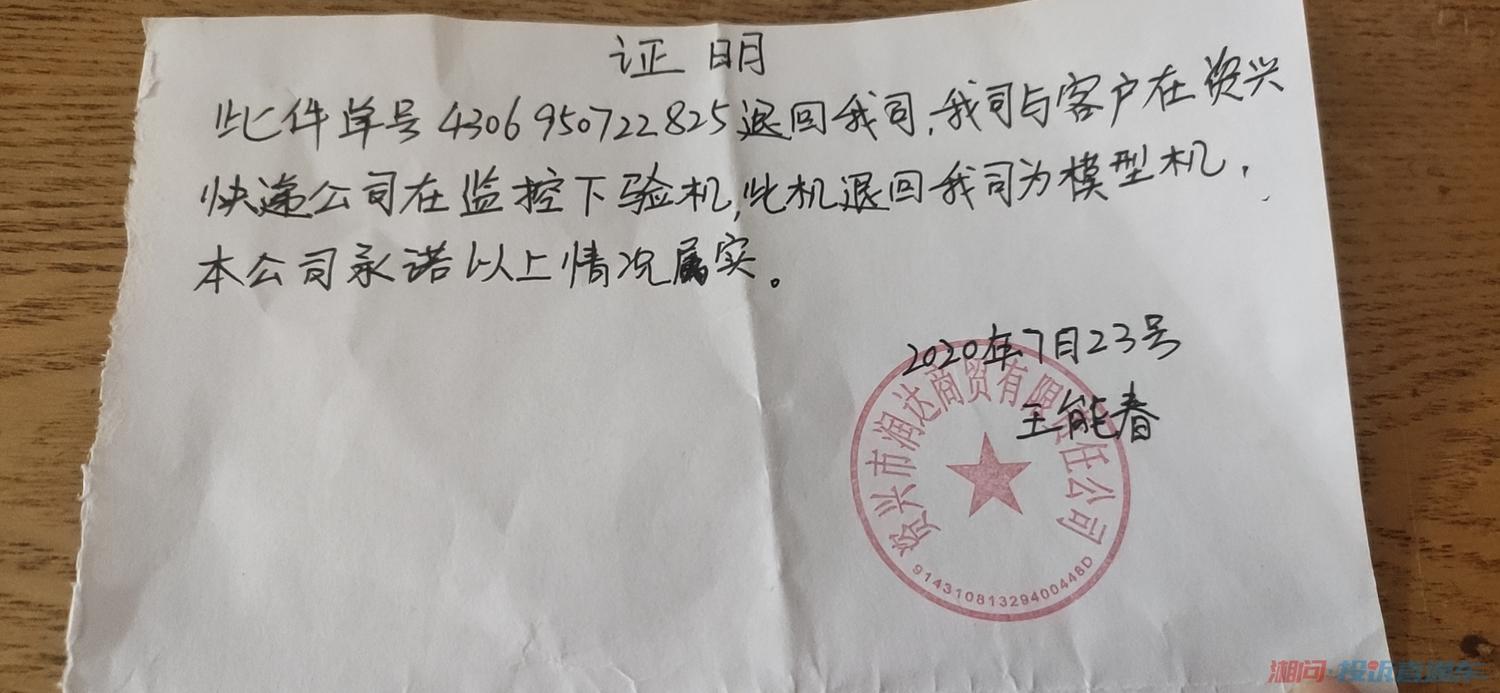 证明
此件单号4306950722825退回我司,我司与客户在资兴
快递公司在监控下验机,此机退回我司为模型机,
本公司承诺以上情况属实。
2020年7月23号
王能春
资兴市润达商贸有限责任公司
91431081329400448D
湘问·投诉直通车